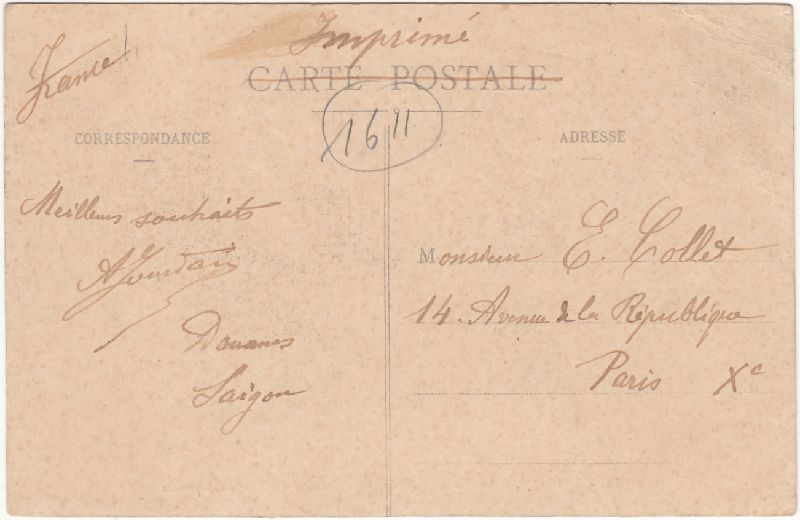 France
Imprimé
CARTE POSTALE
16 91
CORRESPONDANCE
ADRESSE
Meilleurs souhaits
AJourdan
Douanes
Saigon
Monsieur E. Collet
14. Avenue de la République
Paris Xe